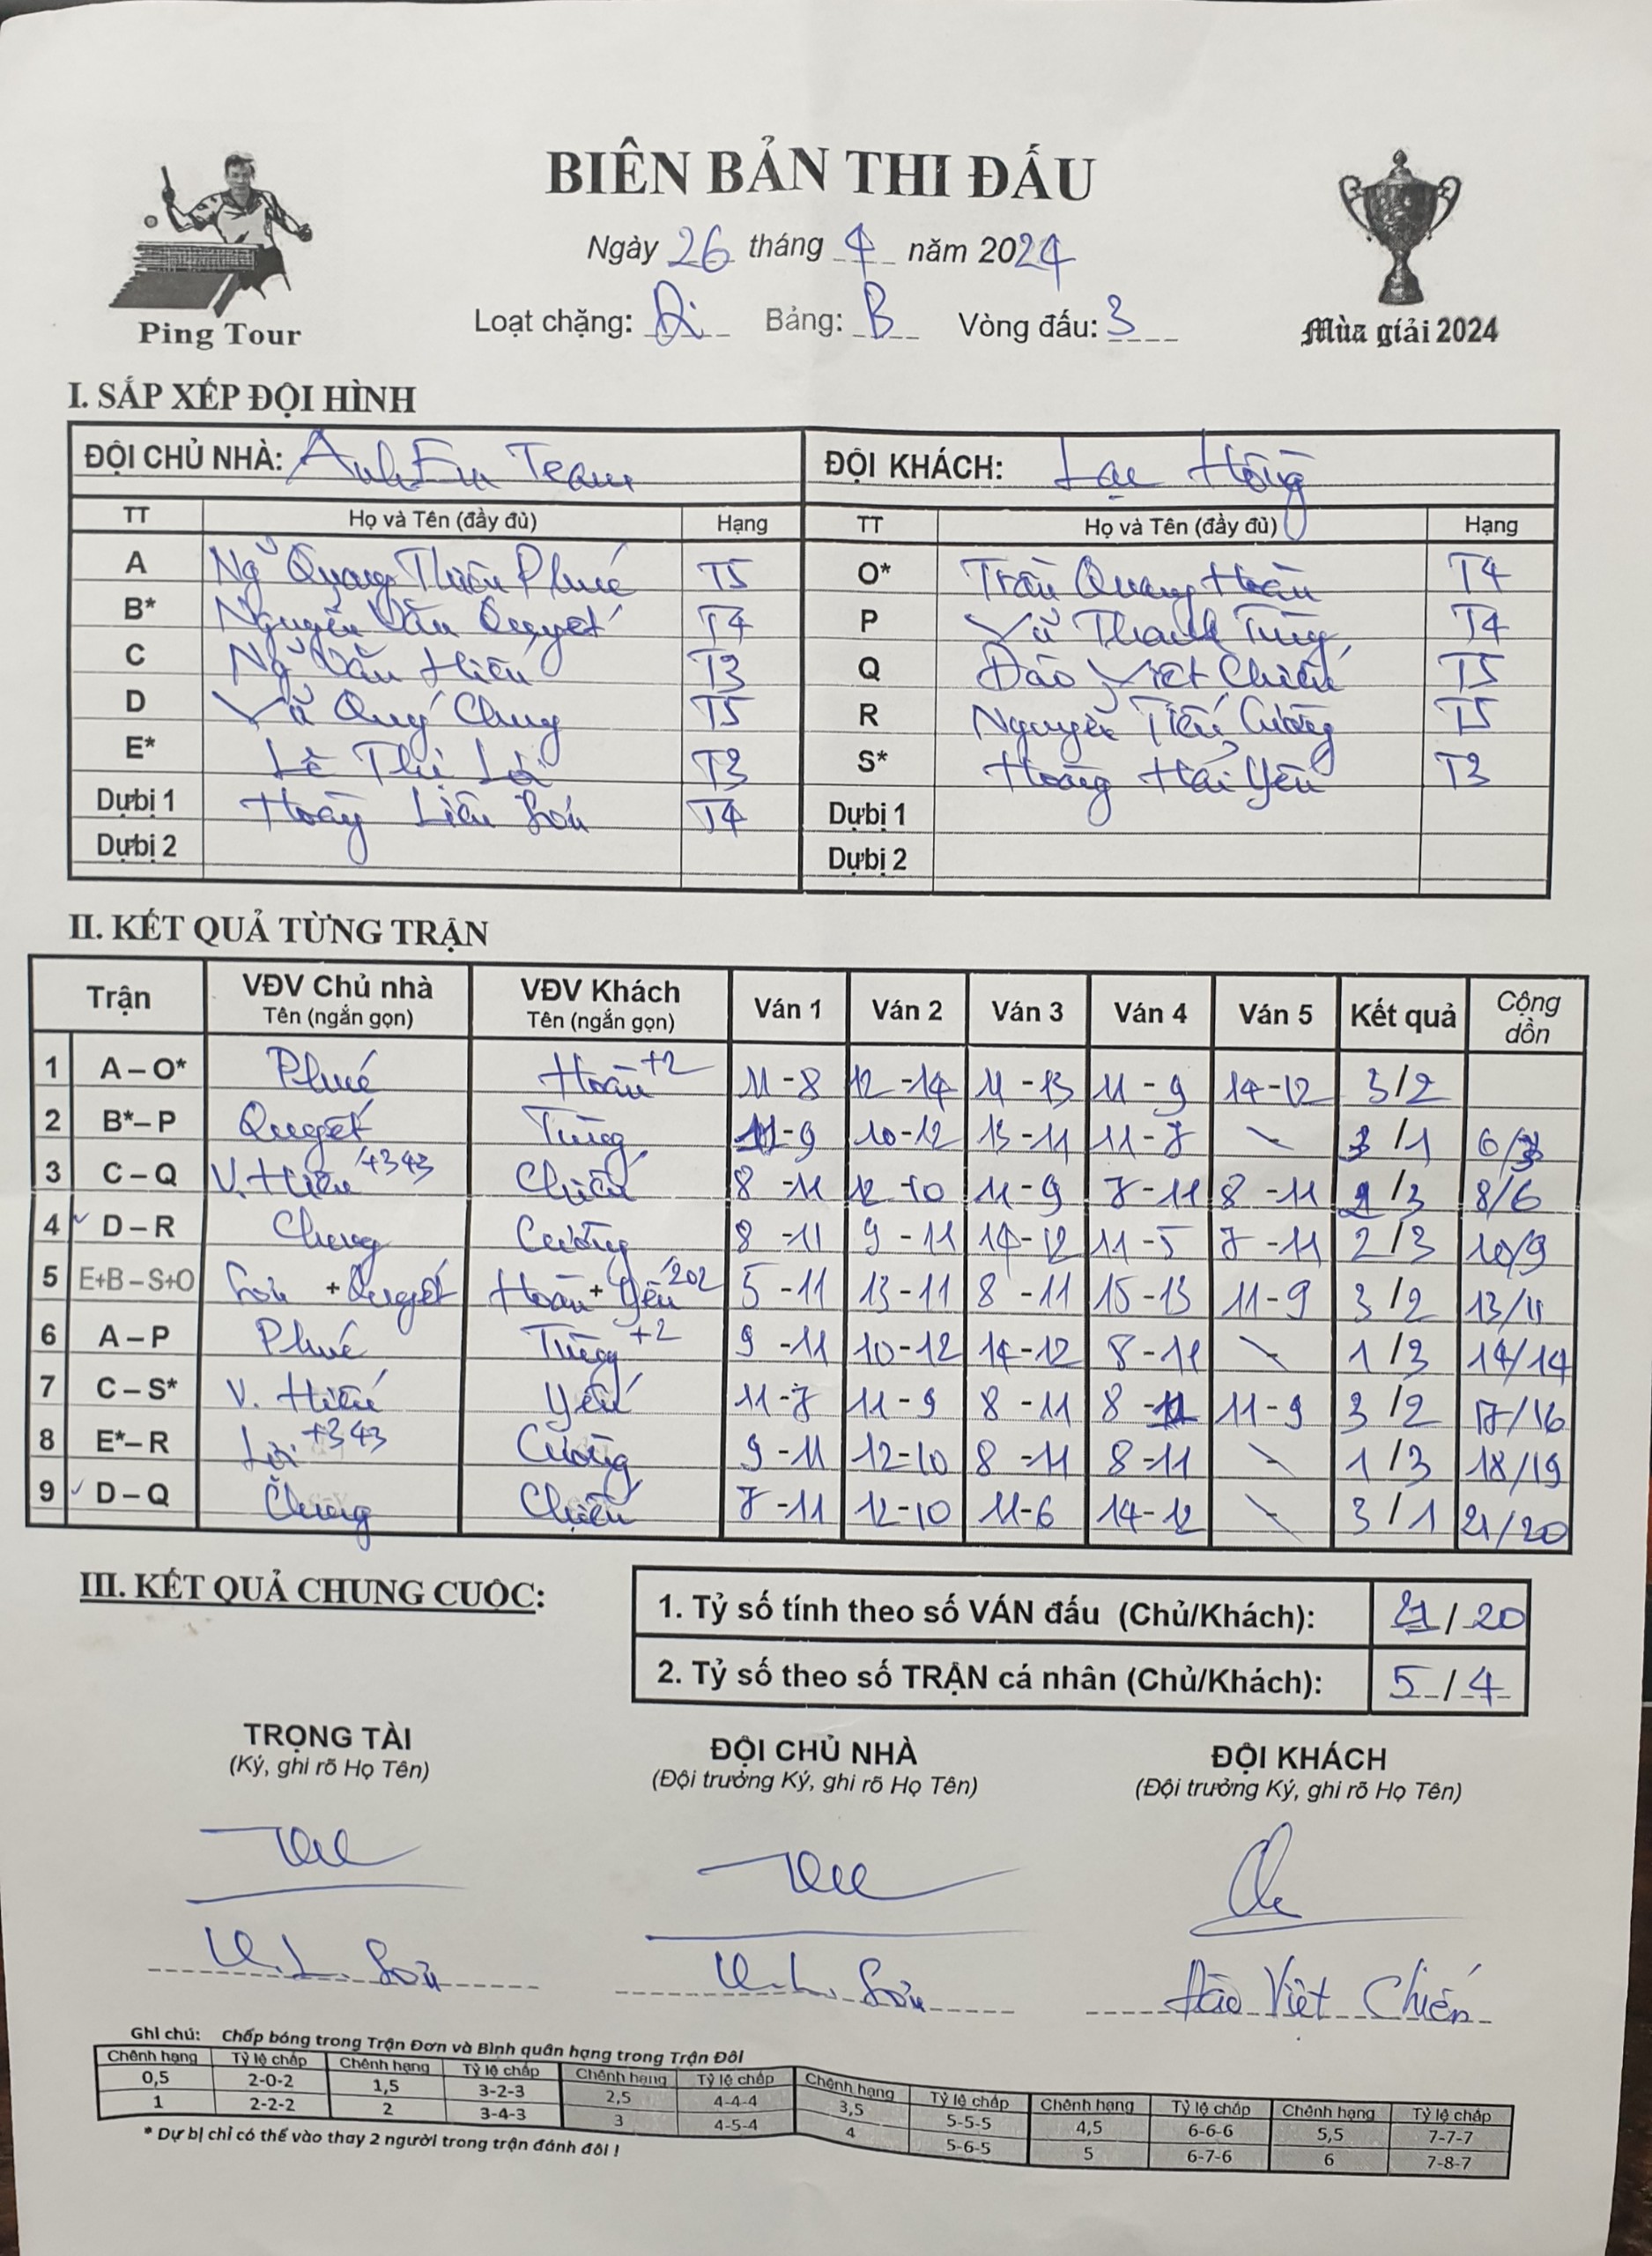 BIÊN BẢN THI ĐẤU
Ngày 26 tháng 4 năm 2024
Loạt chặng: Đi Bảng: B Vòng đấu: 3
Ping Tour
Mùa giải 2024
I. SẮP XẾP ĐỘI HÌNH
ĐỘI CHỦ NHÀ: Anh Em Team ĐỘI KHÁCH: Lạc Hồng
TT Họ và Tên (đầy đủ) Hạng TT Họ và Tên (đầy đủ) Hạng
A Ng̃ Quang Thiên Phú T5 O* Trần Quang Hoàn T4
B* Nguyễn Văn Quyết T4 P Vũ Thanh Tùng T4
C Ng̃ Văn Hiến T3 Q Đào Việt Chiến T5
D Vũ Quý Chung T5 R Nguyễn Tiến Cường T5
E* Lê Thị Lợi T3 S* Hoàng Hải Yến T3
Dự bị 1 Hoàng Liên Sơn T4 Dự bị 1
Dự bị 2 Dự bị 2
II. KẾT QUẢ TỪNG TRẬN
Trận VĐV Chủ nhà Tên (ngắn gọn) VĐV Khách Tên (ngắn gọn) Ván 1 Ván 2 Ván 3 Ván 4 Ván 5 Kết quả Cộng dồn
1 A – O* Phú Hoàn +2 11-8 12-14 11-13 11-9 14-12 3/2
2 B*– P Quyết Tùng 11-9 10-12 13-11 11-7 \ 3/1 6/3
3 C – Q V. Hiến +343 Chiến 8-11 12-10 11-9 7-11 8-11 2/3 8/6
4 D – R Chung Cường 8-11 9-11 14-12 11-5 7-11 2/3 10/9
5 E+B – S+O Sơn + Quyết Hoàn + Yến 202 5-11 13-11 8-11 15-13 11-9 3/2 13/11
6 A – P Phú Tùng +2 9-11 10-12 14-12 8-11 \ 1/3 14/14
7 C – S* V. Hiến Yến 11-7 11-9 8-11 8-11 11-9 3/2 17/16
8 E*– R Lợi +343 Cường 9-11 12-10 8-11 8-11 \ 1/3 18/19
9 D – Q Chung Chiến 7-11 12-10 11-6 14-12 \ 3/1 21/20
III. KẾT QUẢ CHUNG CUỘC:
1. Tỷ số tính theo số VÁN đấu (Chủ/Khách): 21/20
2. Tỷ số theo số TRẬN cá nhân (Chủ/Khách): 5/4
TRỌNG TÀI ĐỘI CHỦ NHÀ ĐỘI KHÁCH
(Ký, ghi rõ Họ Tên) (Đội trưởng Ký, ghi rõ Họ Tên) (Đội trưởng Ký, ghi rõ Họ Tên)
H.L. Sơn H.L. Sơn Đào Việt Chiến
Ghi chú: Chấp bóng trong Trận Đơn và Bình quân hạng trong Trận Đôi
Chênh hạng Tỷ lệ chấp Chênh hạng Tỷ lệ chấp Chênh hạng Tỷ lệ chấp Chênh hạng Tỷ lệ chấp Chênh hạng Tỷ lệ chấp Chênh hạng Tỷ lệ chấp
0,5 2-0-2 1,5 3-2-3 2,5 4-4-4 3,5 5-5-5 4,5 6-6-6 5,5 7-7-7
1 2-2-2 2 3-4-3 3 4-5-4 4 5-6-5 5 6-7-6 6 7-8-7
* Dự bị chỉ có thể vào thay 2 người trong trận đánh đôi !